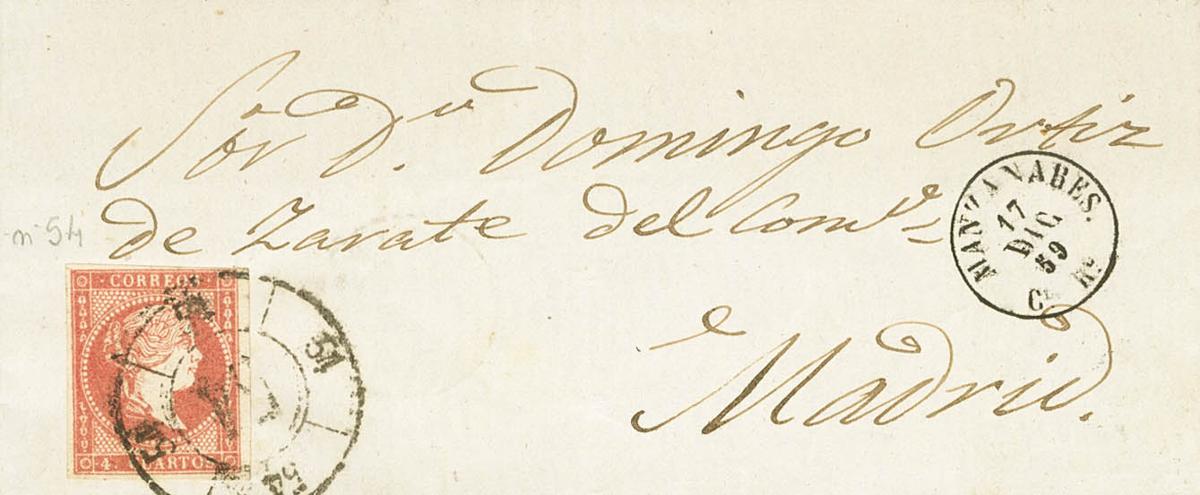 Sor. Dn. Domingo Ortiz
de Zarate del Comº.
Madrid.
CORREOS
4. CUARTOS
MANZANARES.
17
DIC
59